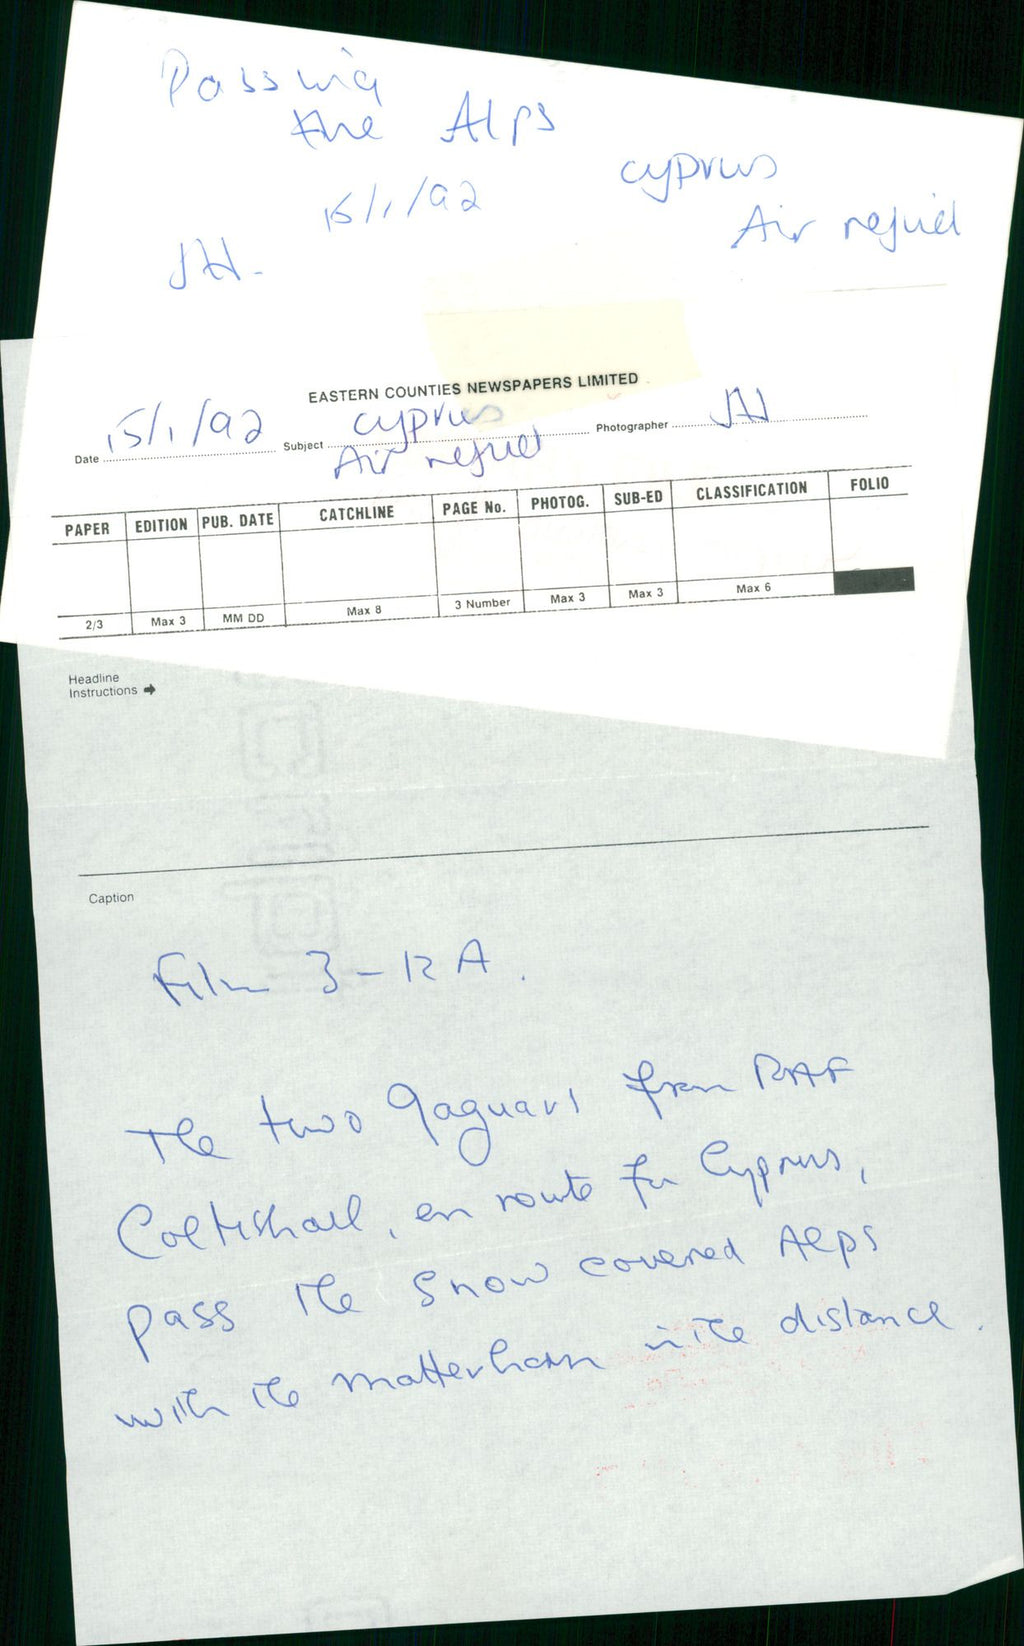 Passing
the Alps
15/1/92 cyprus
JH. Air refuel
EASTERN COUNTIES NEWSPAPERS LIMITED
Date 15/1/92 Subject cyprus Air refuel Photographer JH
PAPER EDITION PUB. DATE CATCHLINE PAGE No. PHOTOG. SUB-ED CLASSIFICATION FOLIO
2/3 Max 3 MM DD Max 8 3 Number Max 3 Max 3 Max 6
Headline
Instructions →
Caption
Film 3 - 12 A.
The two Jaguars from RAF
Coltishall, en route for Cyprus,
pass the snow covered Alps
with the matterhorn in the distance.